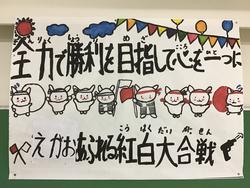 全力で勝利を目指して心を一つに
えがおあふれる紅白大合戦